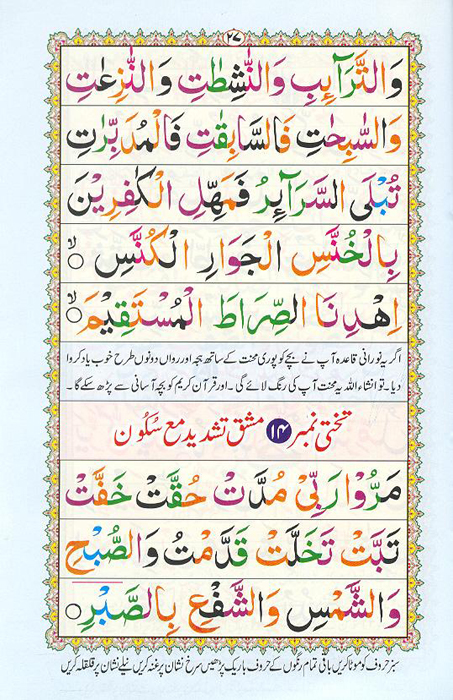 ۲۷
وَالتَّرَآئِبِ وَالنّٰشِطٰتِ وَالنّٰزِعٰتِ
وَالسّٰبِحٰتِ فَالسّٰبِقٰتِ فَالْمُدَبِّرٰتِ
تُبْلَى السَّرَآئِرُ فَمَهِّلِ الْكٰفِرِيْنَ
بِالْخُنَّسِ الْجَوَارِ الْكُنَّسِ ۙ○
اِهْدِنَا الصِّرَاطَ الْمُسْتَقِيْمَ ۙ○
اگر یہ نورانی قاعدہ آپ نے بچے کو پوری محنت کے ساتھ ہجہ اور رواں دونوں طرح خوب یاد کروا
دیا۔ تو انشاءاللہ یہ محنت آپ کی رنگ لائے گی۔ اور قرآن کریم کو بچہ آسانی سے پڑھ سکے گا۔
تختی نمبر ۱۴ مشق تشدید مع سُکُون
مَرُّوْا رَبِّىْ مُدَّتْ حُقَّتْ خَفَّتْ
تَبَّتْ تَخَلَّتْ قَدَّمْتُ وَالصُّبْحِ
وَالشَّمْسِ وَالشَّفْعِ بِالصَّبْرِ ○
سبز حروف کو موٹا کریں باقی تمام رنگوں کے حروف باریک پڑھیں سرخ نشان پر غنہ کریں نیلے نشان پر قلقلہ کریں